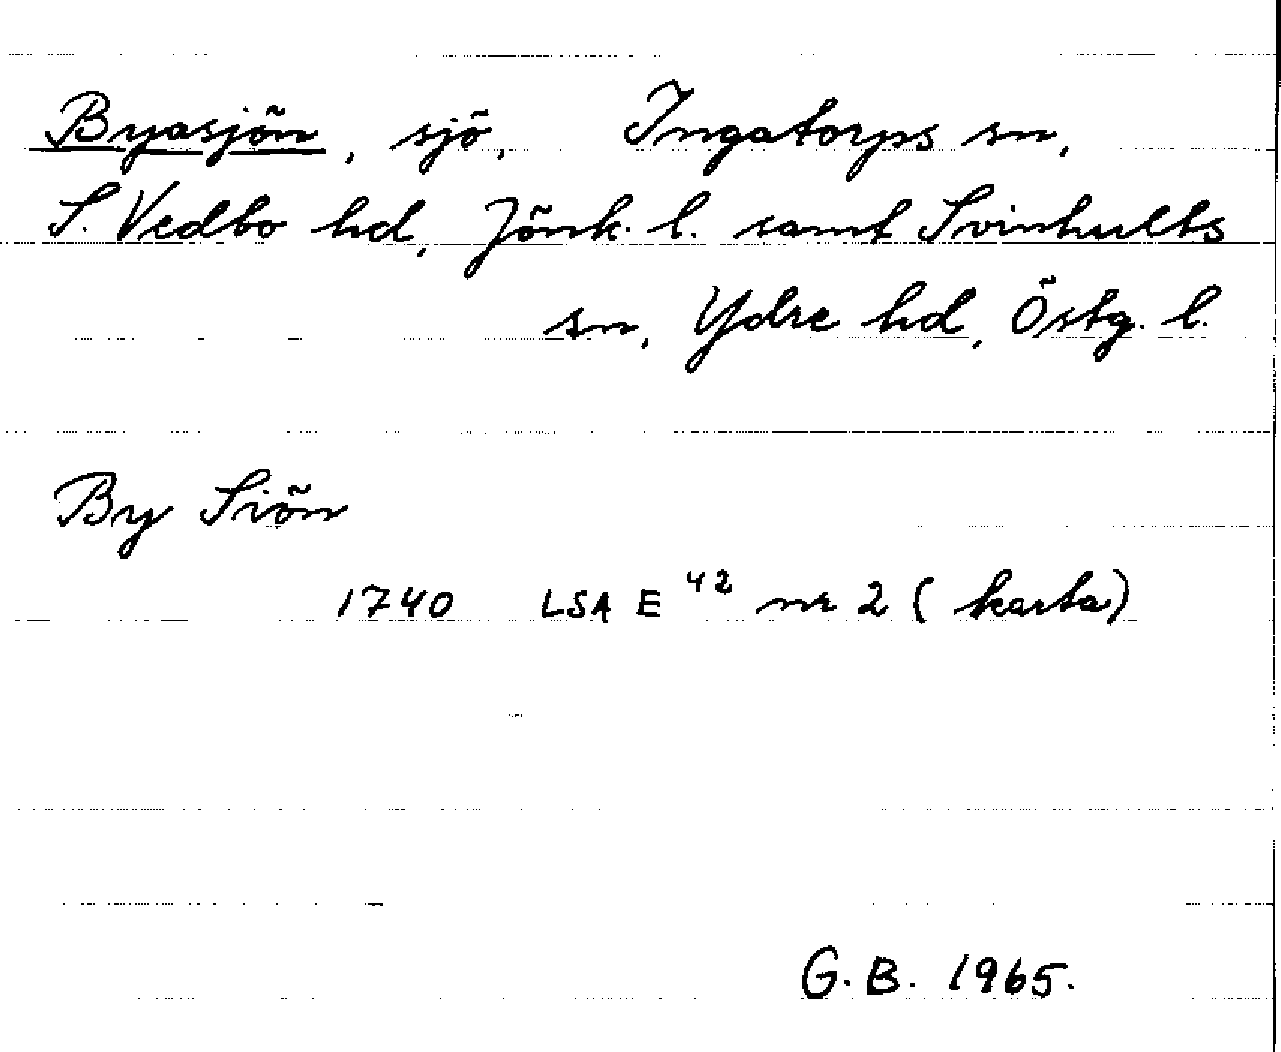 Byasjön, sjö, Ingatorps sn,
S. Vedbo hd, Jönk. l. samt Svinhults
sn, Ydre hd, Östg. l.
By Siön
1740 LSA E 42 nr 2 (karta)
G. B. 1965.